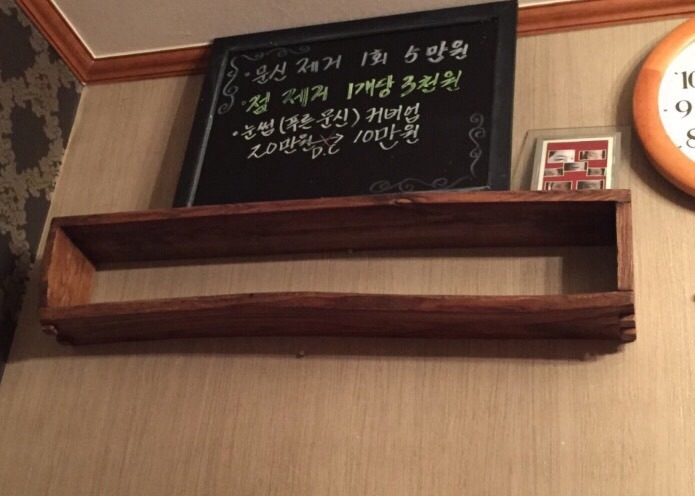 · 문신 제거 1회 5만원
· 점 제거 1개당 3천원
· 눈썹(푸른 문신) 커버업
20만원 D.C 10만원
10
9
8